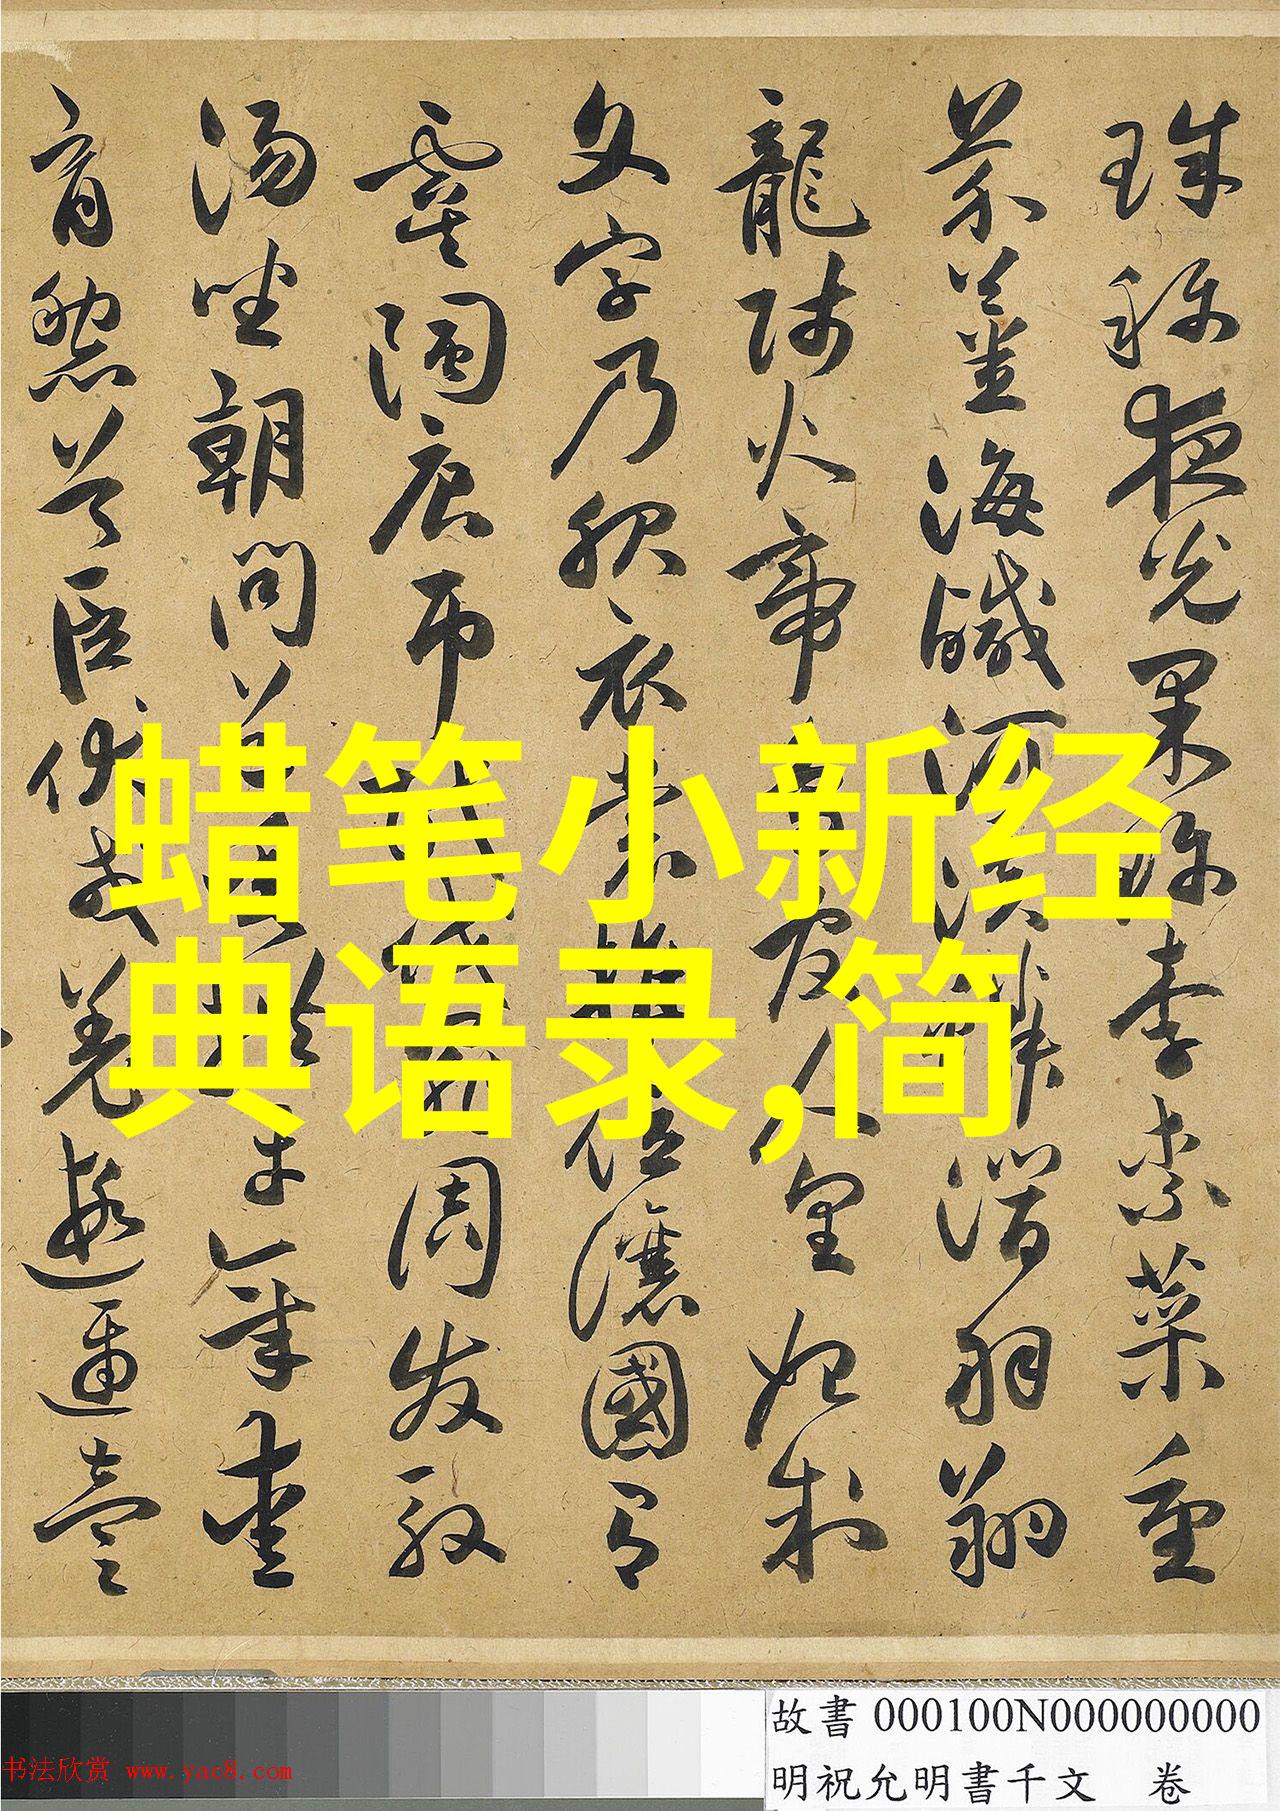 珠称夜光果珎李柰菜重
芥薑海鹹河淡鱗潜羽翔
龍師火帝鳥官人皇始制
文字乃服衣裳推位讓國有
虞陶唐弔民伐罪周发殷
湯坐朝問道垂拱平章愛
育黎首臣伏戎羌遐邇壹
蜡笔小新经
典语录,简
故書 000100N000000000
明祝允明書千文 卷
书法欣赏 www.yac8.com